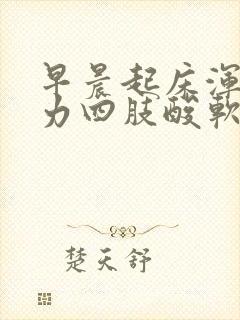 早晨起床渾
力四肢酸軟
楚天舒